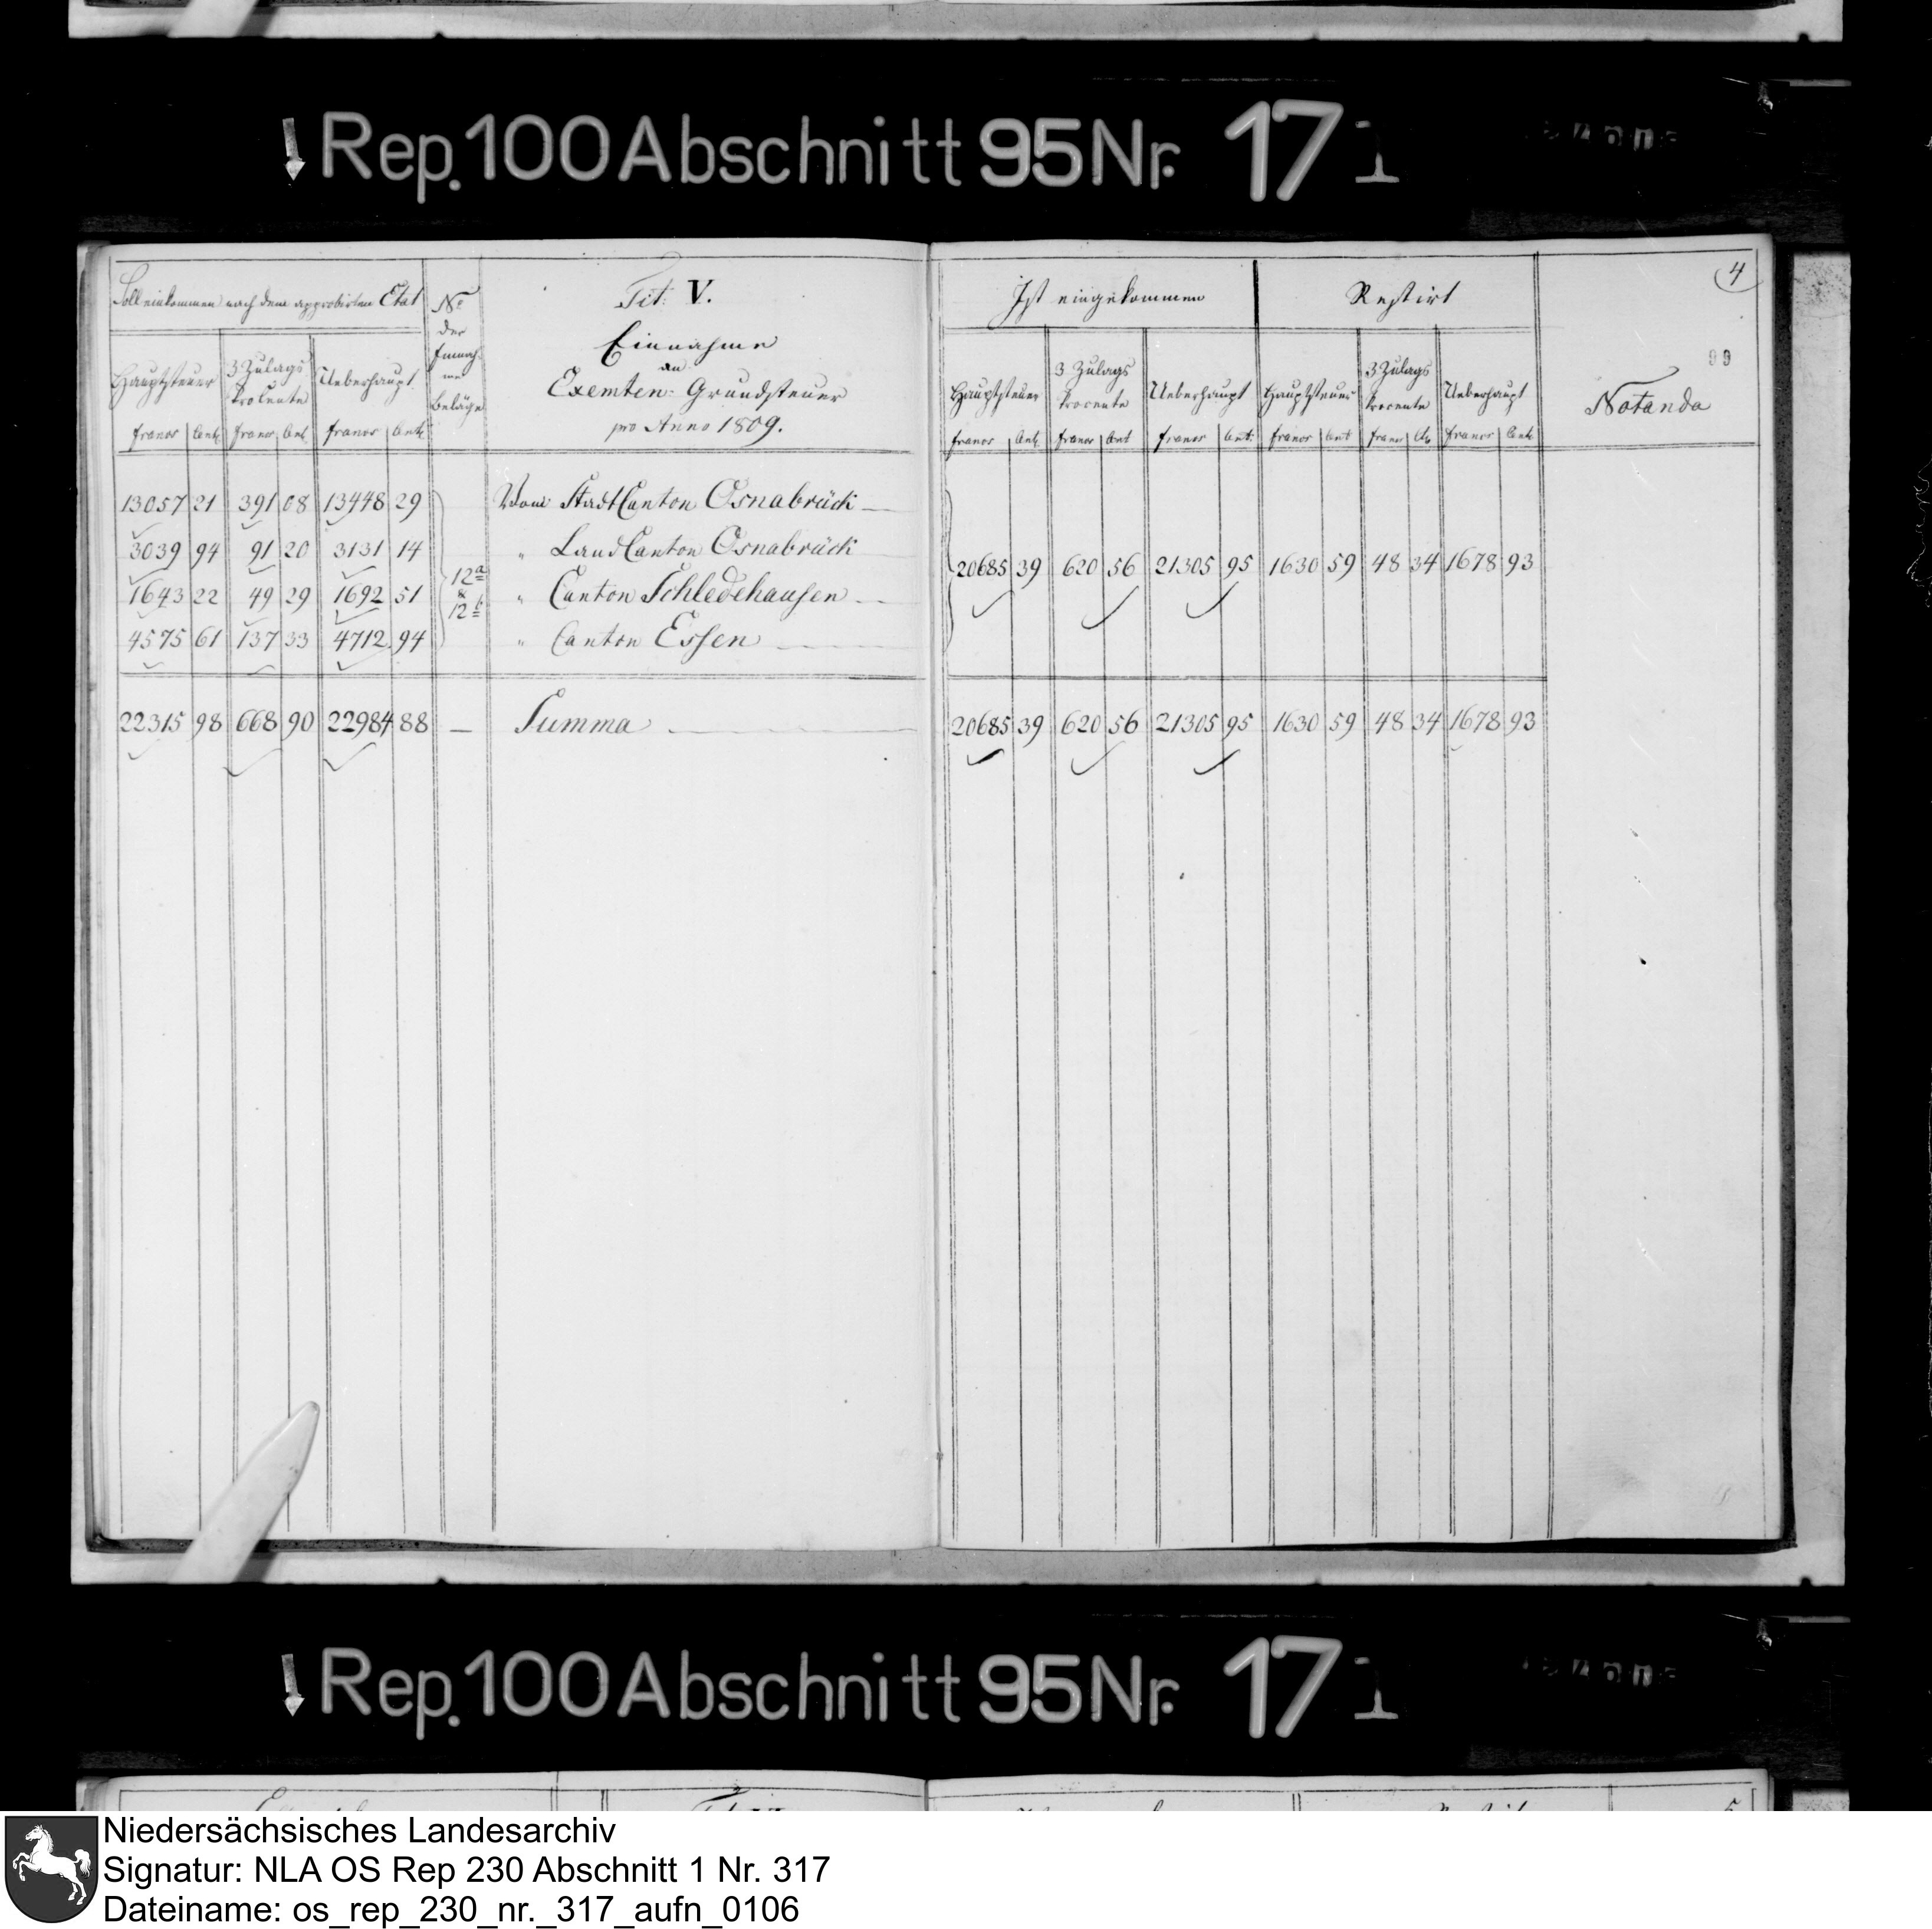 ↓ Rep. 100 Abschnitt 95 Nr. 171
4
99
Soll einkommen nach dem approbirten Etat
Hauptsteuer | 3 Zulags Procente | Ueberhaupt
francs | Cent. | francs | Cent. | francs | Cent.
No der Einnahme Beläge
Tit: V.
Einnahme
an
Exemten-Grundsteuer
pro Anno 1809.
Ist eingekommen | Restirt
Hauptsteuer | 3 Zulags Procente | Ueberhaupt | Hauptsteuer | 3 Zulags Procente | Ueberhaupt
francs | Cent. | francs | Cent | francs | Cent. | francs | Cent | francs | Ct. | francs | Cent.
Notanda
13057 21 391 08 13448 29 Vom Stadt Canton Osnabrück
3039 94 91 20 3131 14 " Land Canton Osnabrück
12a & 12b 20685 39 620 56 21305 95 1630 59 48 34 1678 93
1643 22 49 29 1692 51 " Canton Schledehausen
4575 61 137 33 4712 94 " Canton Essen
22315 98 668 90 22984 88 — Summa 20685 39 620 56 21305 95 1630 59 48 34 1678 93
↓ Rep. 100 Abschnitt 95 Nr. 171
Niedersächsisches Landesarchiv
Signatur: NLA OS Rep 230 Abschnitt 1 Nr. 317
Dateiname: os_rep_230_nr._317_aufn_0106